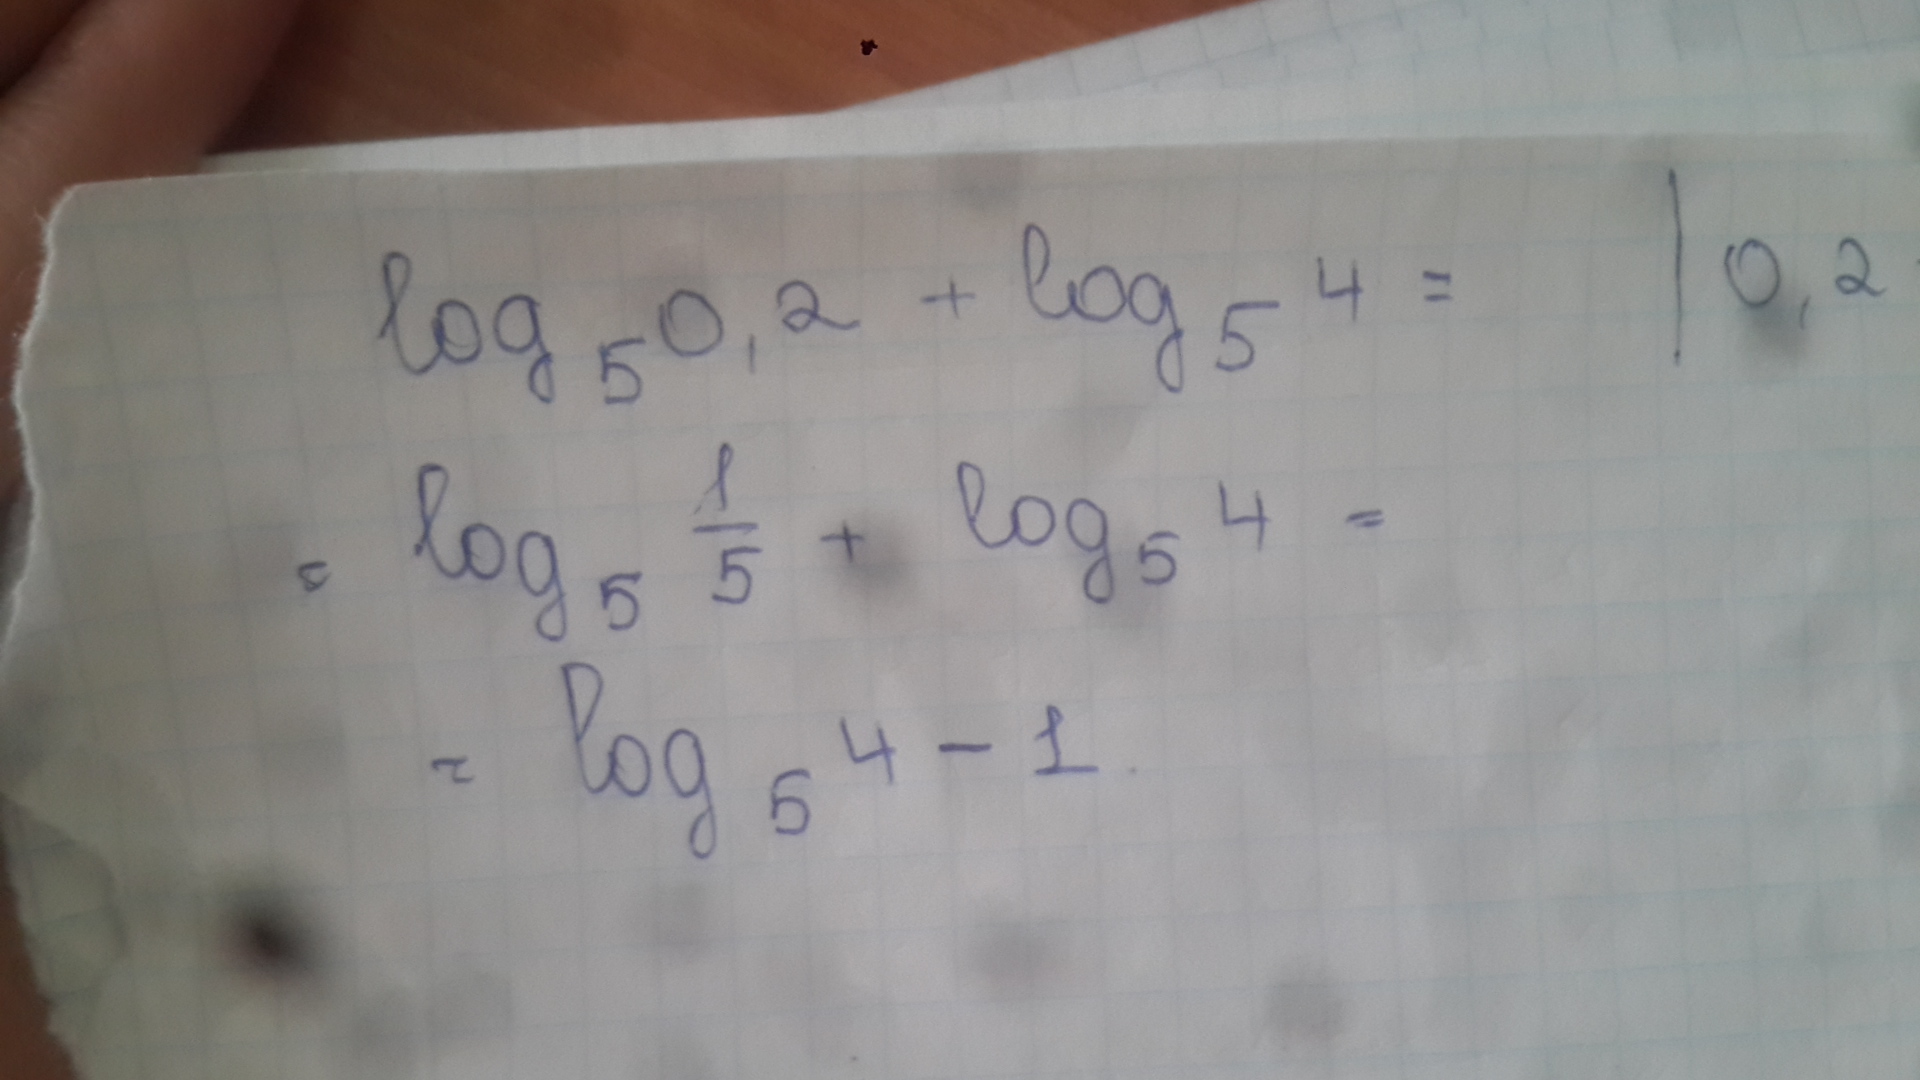 log₅ 0,2 + log₅ 4 = | 0,2
= log₅ 1/5 + log₅ 4 =
= log₅ 4 - 1.